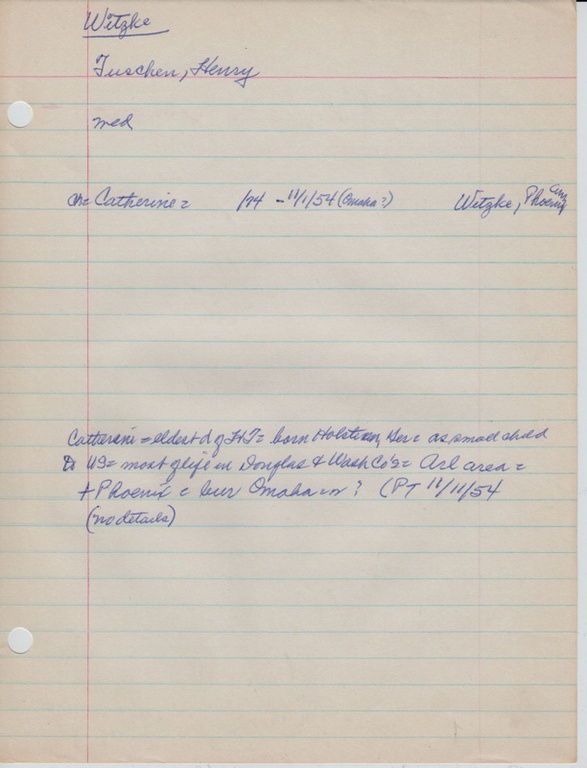 Witzke
Tuschen, Henry
med
ch= Catherine = /74 - 11/1/54 (Omaha?) Witzke, Phoenix
Catherine = eldest d of HT = born Holstein, Ger = as small child
to US = most of life in Douglas & Wash Co's = Arl area =
+ Phoenix = bur Omaha = ? (PT 11/11/54
(no details)